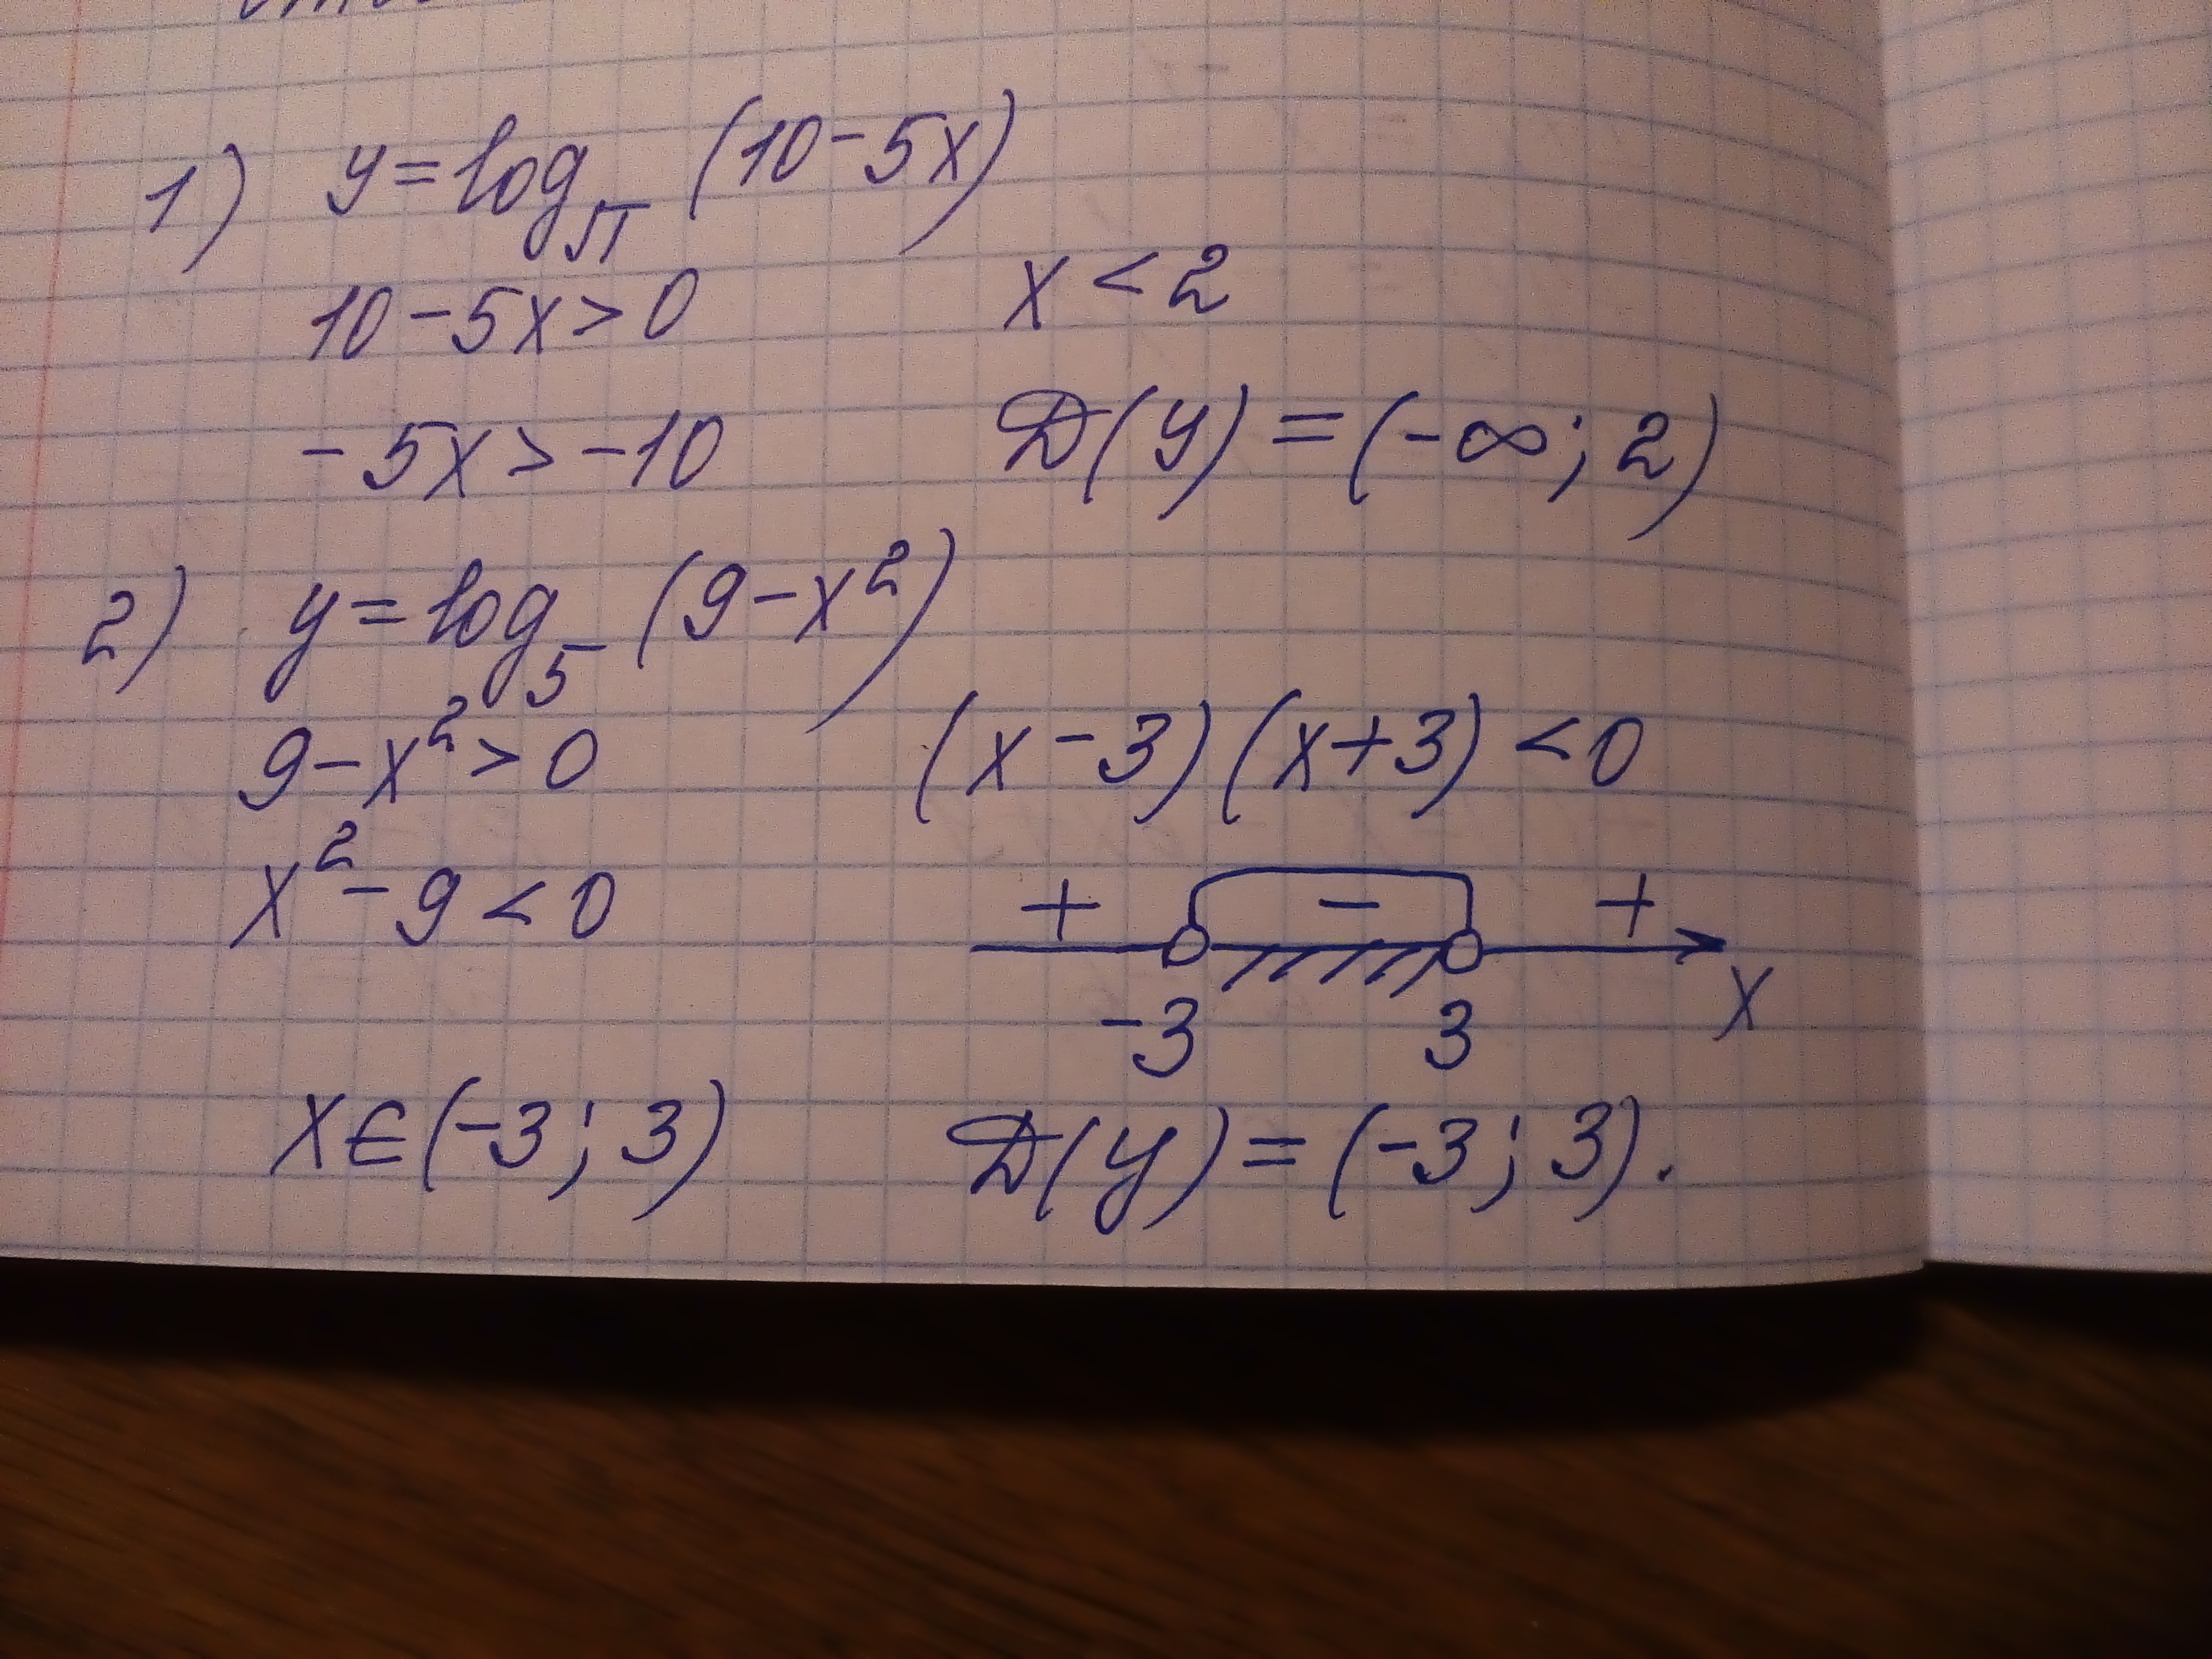 1) y = log_π (10 - 5x)
10 - 5x > 0
x < 2
-5x > -10
D(y) = (-∞; 2)
2) y = log_5 (9 - x²)
9 - x² > 0
(x - 3)(x + 3) < 0
x² - 9 < 0
+ - +
-3 3 x
x ∈ (-3; 3)
D(y) = (-3; 3).